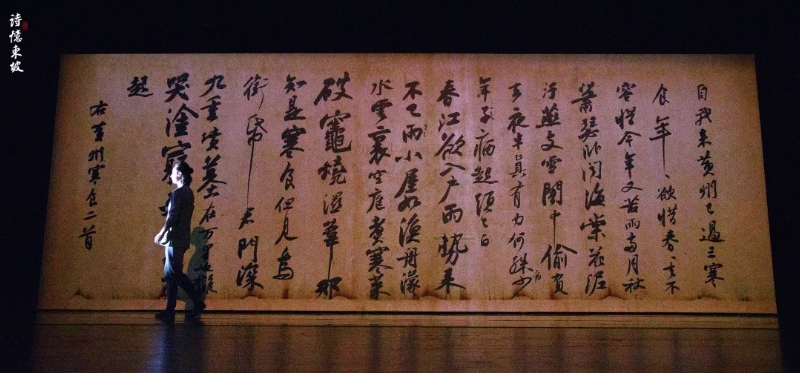 詩憶東坡
自我来黄州已過三寒
食年〻欲惜春〻去不
容惜今年又苦雨兩月秋
蕭瑟卧聞海棠花泥
汙燕支雪闇中偷負
去夜半真有力何殊少
年病起頭已白
春江欲入户雨勢来
不已雨小屋如漁舟濛
水雲裏空庖煮寒菜
破竈燒濕葦那
知是寒食但見烏
銜帋君門深
九重墳墓在万里也擬
哭塗窮
起
右黄州寒食二首